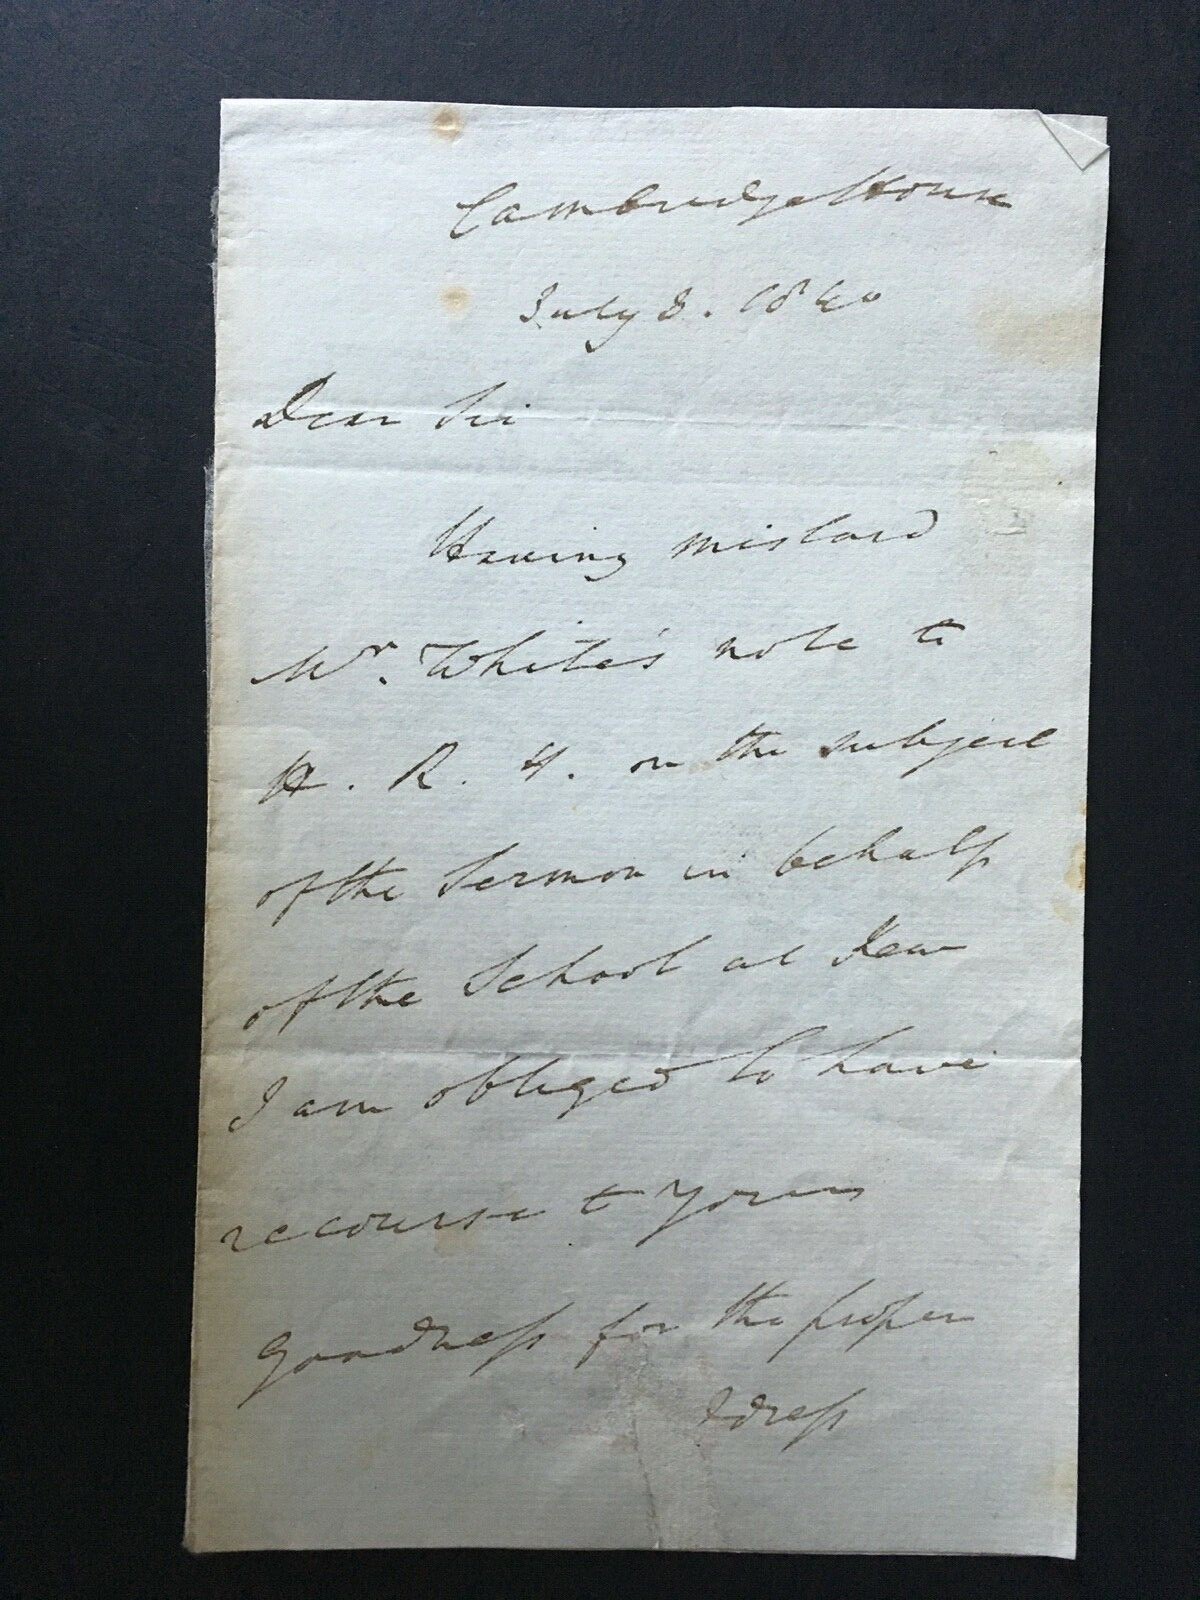 Cambridge House
July 8. 1840
Dear Sir
Having mislaid
Mr. White's note to
H. R. H. on the subject
of the Sermon in behalf
of the School at Kew
I am obliged to have
recourse to your
goodness for the proper
adress